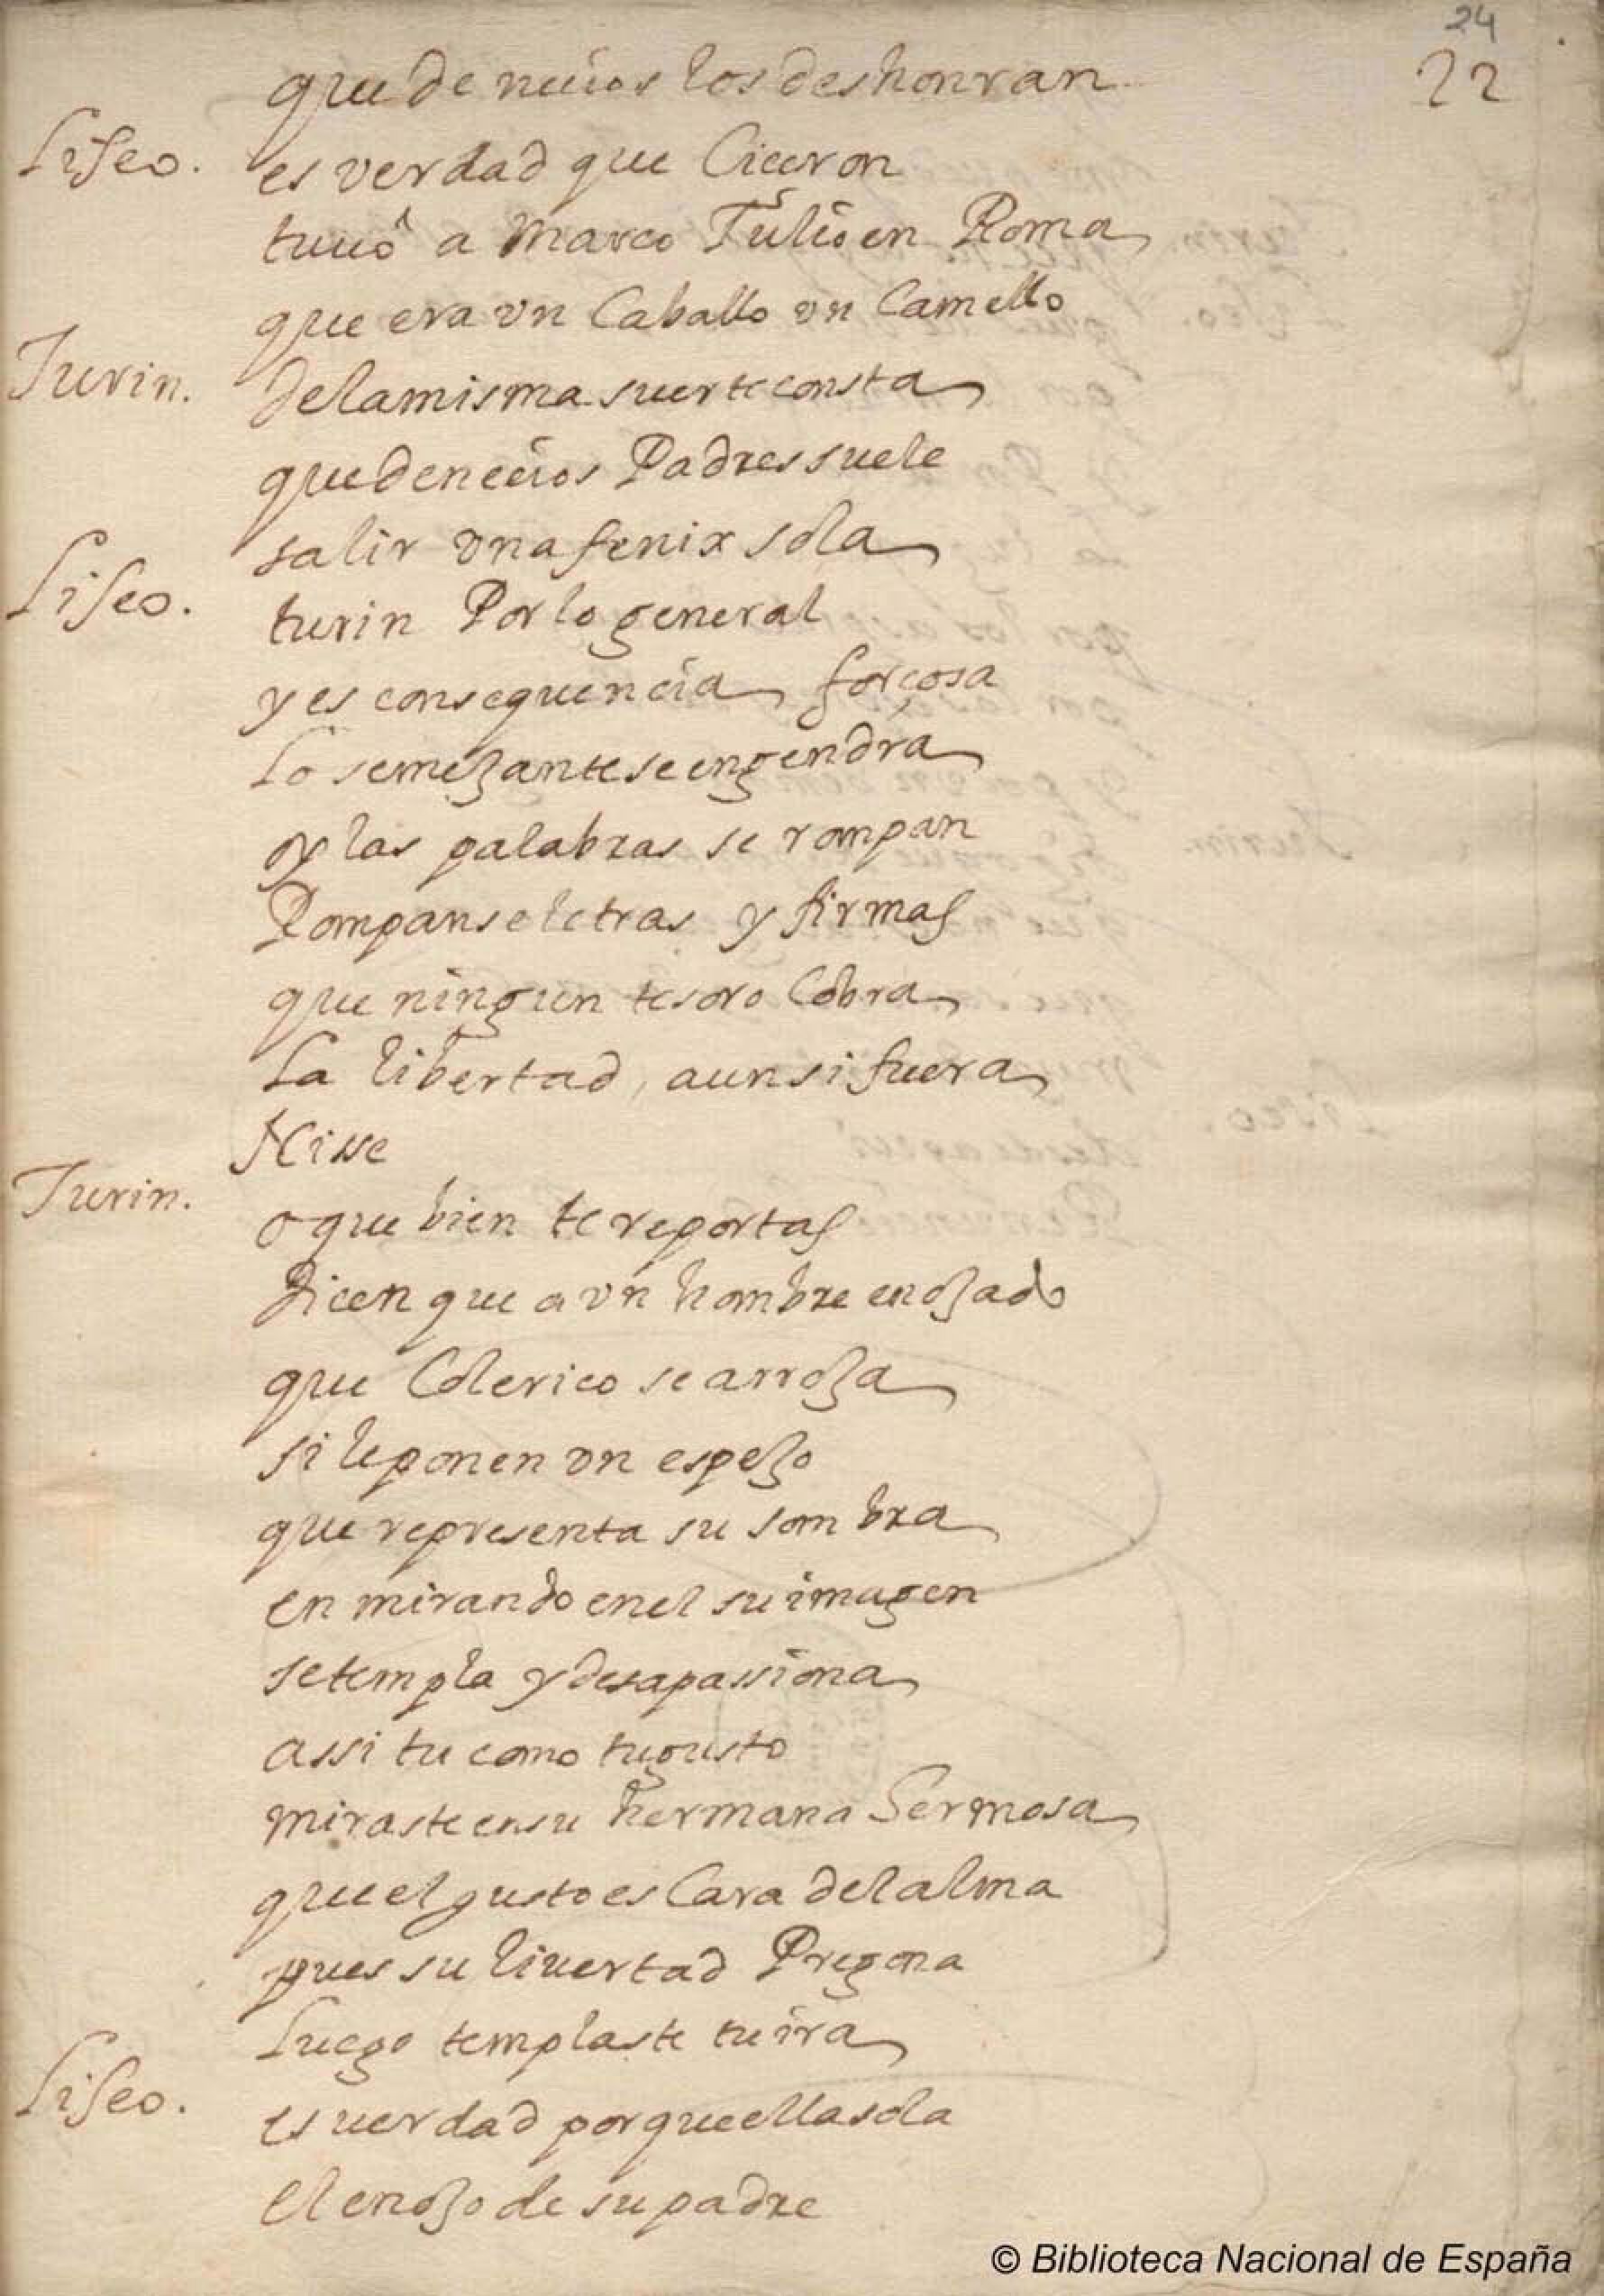 24
22
que de necios los deshonran
Liseo. es verdad que Ciceron
tuuo a Marco Tulio en Roma
que era vn Caballo vn Camello
Turin. de la misma suerte consta
que de necios Padres suele
salir vna fenix sola
Liseo. turin Por lo general
y es consequencia forçosa
Lo semejante se engendra
oy las palabras se rompan
Rompanse letras y firmas
que ningun tesoro Cobra
La libertad, aun si fuera
Nisse
Turin. o que bien te reportas
Dicen que a vn hombre enojado
que Colerico se arroja
si le ponen vn espejo
que representa su sombra
en mirando en el su imagen
se templa y desapassiona
assi tu como tu gusto
miraste en su hermana hermosa
que el gusto es Cara del alma
pues su liuertad Pregona
Luego templaste tu ira
Liseo. es uerdad porque ella sola
el enojo de su padre
© Biblioteca Nacional de España